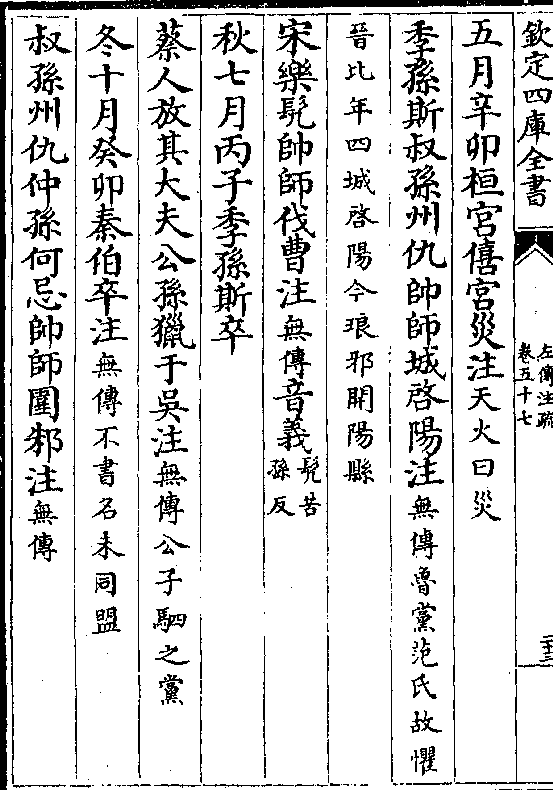 欽定四庫全書
左傳注疏
卷五十七
五月辛卯桓宮僖宮災注天火曰災
季孫斯叔孫州仇帥師城啓陽注無傳魯黨范氏故懼
晉比年四城啓陽今琅邪開陽縣
宋樂髡帥師伐曹注無傳音義髡苦孫反
秋七月丙子季孫斯卒
蔡人放其大夫公孫獵于吳注無傳公子駟之黨
冬十月癸卯秦伯卒注無傳不書名未同盟
叔孫州仇仲孫何忌帥師圍邾注無傳